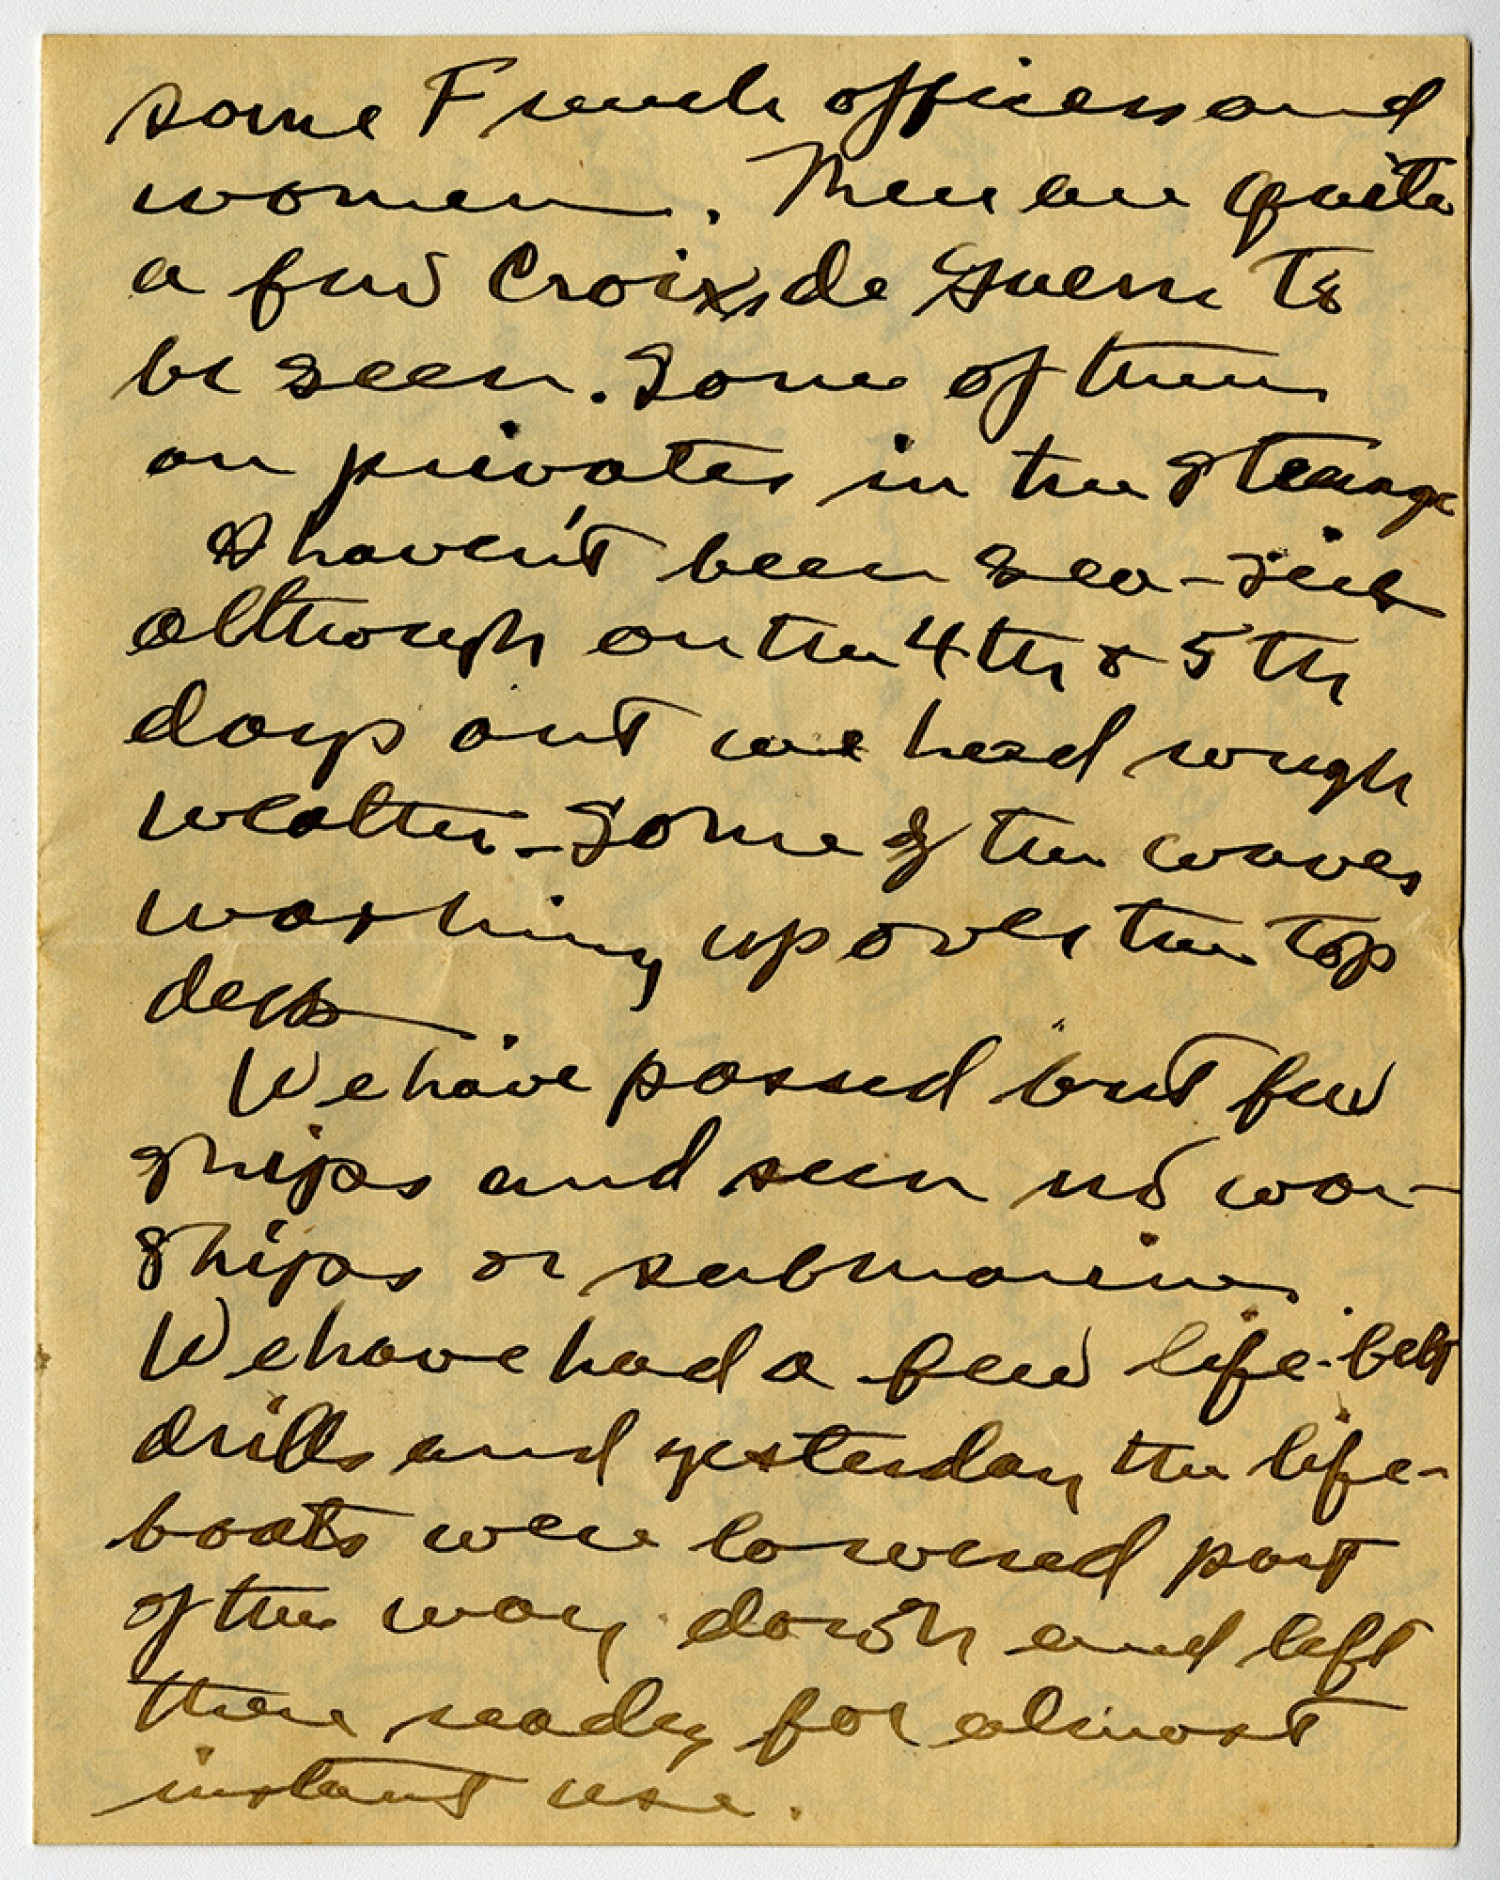 some French officers and
women. There are quite
a few Croix de Guerre to
be seen. Some of them
on privates in the steerage
I haven't been sea-sick
although on the 4th & 5th
days out we had rough
weather - Some of the waves
washing up over the top
deck.
We have passed but few
ships and seen no war-
ships or submarines.
We have had a few life-belt
drills and yesterday the life-
boats were lowered part
of the way down and left
there ready for almost
instant use.